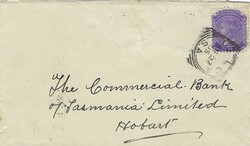 The Commercial Bank
of Tasmania Limited
Hobart